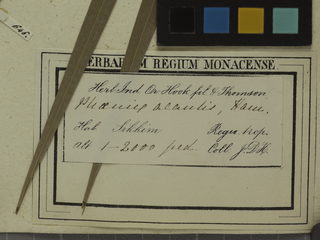 HERBARIUM REGIUM MONACENSE
Herb. Ind. Or. Hook. fil. & Thomson
Phoenix acaulis, Ham.
Hab. Sikkim Regio trop.
alt. 1-2000 ped. Coll. J.D.H.